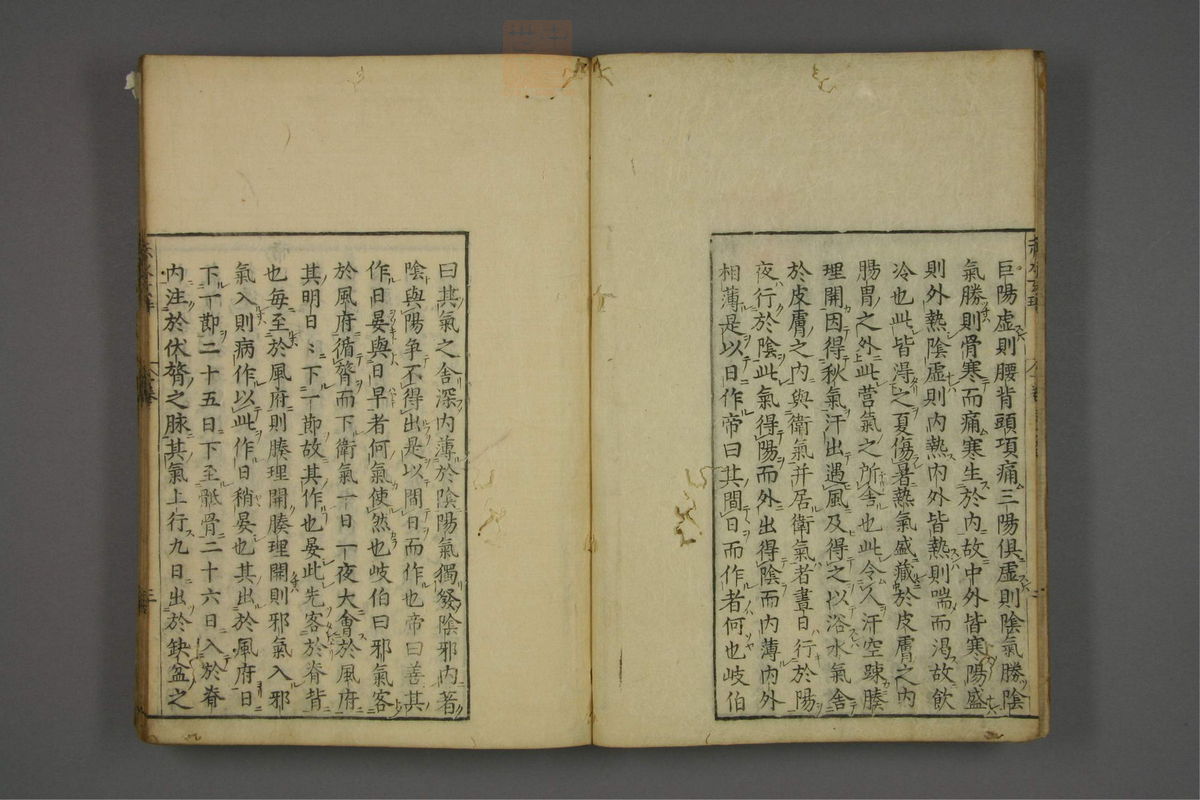 巨陽虛則腰背頭項痛三陽俱虛則陰氣勝陰
氣勝則骨寒而痛寒生於內故中外皆寒陽盛
則外熱陰虛則內熱內外皆熱則喘而渴故飲
冷也此皆淂之夏傷暑熱氣盛藏於皮膚之內
腸胃之外此營氣之所舍也此令人汗空踈腠
理開因得秋氣汗出遇風及得之以浴水氣舎
於皮膚之內與衛氣并居衛氣者晝日行於陽
夜行於陰此氣得陽而外出得陰而內薄內外
相薄是以日作帝曰其間日而作者何也岐伯
曰其氣之舎深內薄於陰陽氣獨發陰邪內著
陰與陽爭不得出是以間日而作也帝曰善其
作日晏與日早者何氣使然也岐伯曰邪氣客
於風府循膂而下衛氣一日一夜大會於風府
其明日〻下一節故其作也晏此先客於脊背
也每至於風府則腠理開腠理開則邪氣入邪
氣入則病作以此作日稍晏也其出於風府日
下一節二十五日下至骶骨二十六日入於脊
內注於伏膂之脉其氣上行九日出於缺盆之